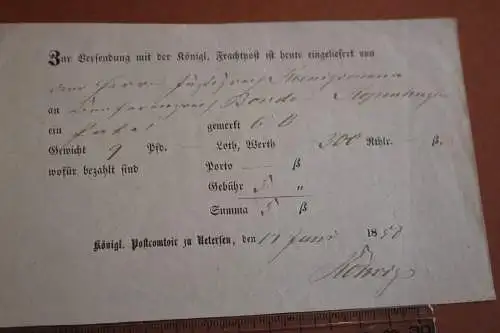 Zur Versendung mit der Königl. Frachtpost ist heute eingeliefert von
dem Herrn
an Bonde Kopenhagen
ein Packet gemerkt C B
Gewicht 9 Pfd. — Loth, Werth 300 Rthlr. — ß,
wofür bezahlt sind Porto — ß
Gebühr 5 „
Summa 5 ß
Königl. Postcomtoir zu Uetersen, den 17 Juni 1850